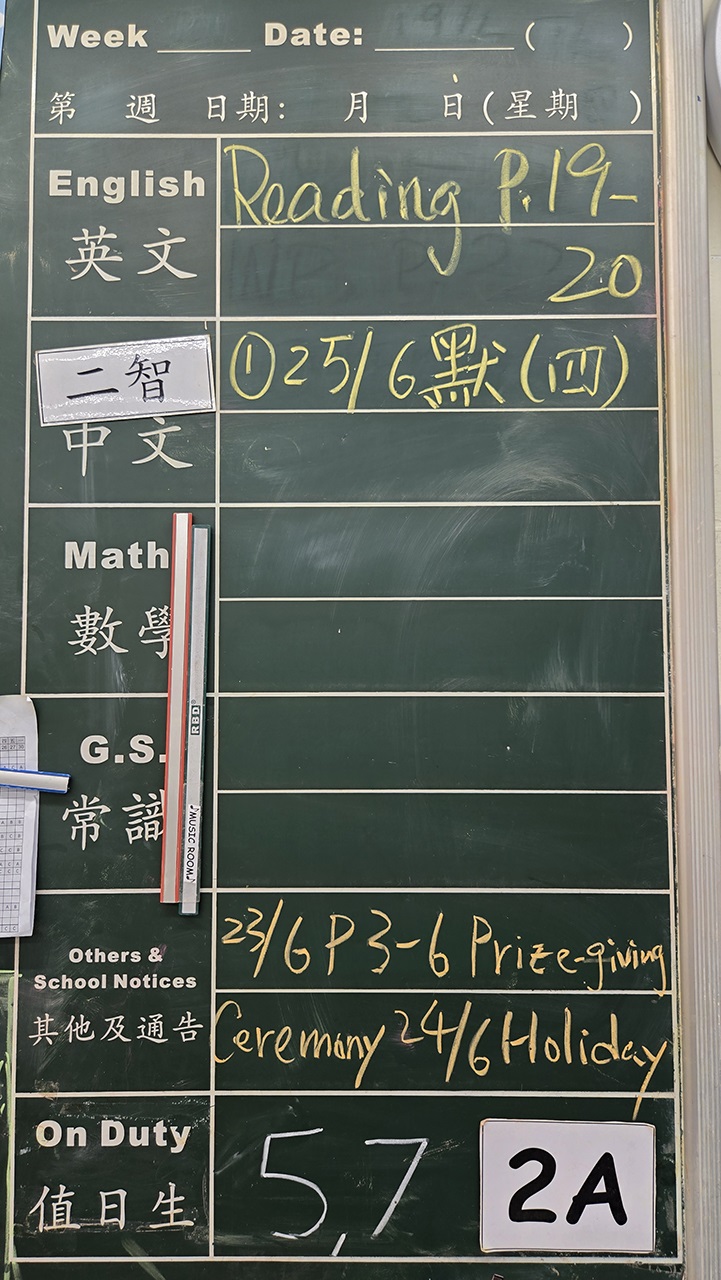 Week Date: ( )
第 週 日期: 月 日(星期 )
English
英文
Reading P.19-
20
二智
中文
①25/6默(四)
Math
數學
RBD
G.S.
常識
♪MUSIC ROOM♪
Others &
School Notices
其他及通告
23/6 P3-6 Prize-giving
Ceremony 24/6 Holiday
On Duty
值日生
5,7
2A